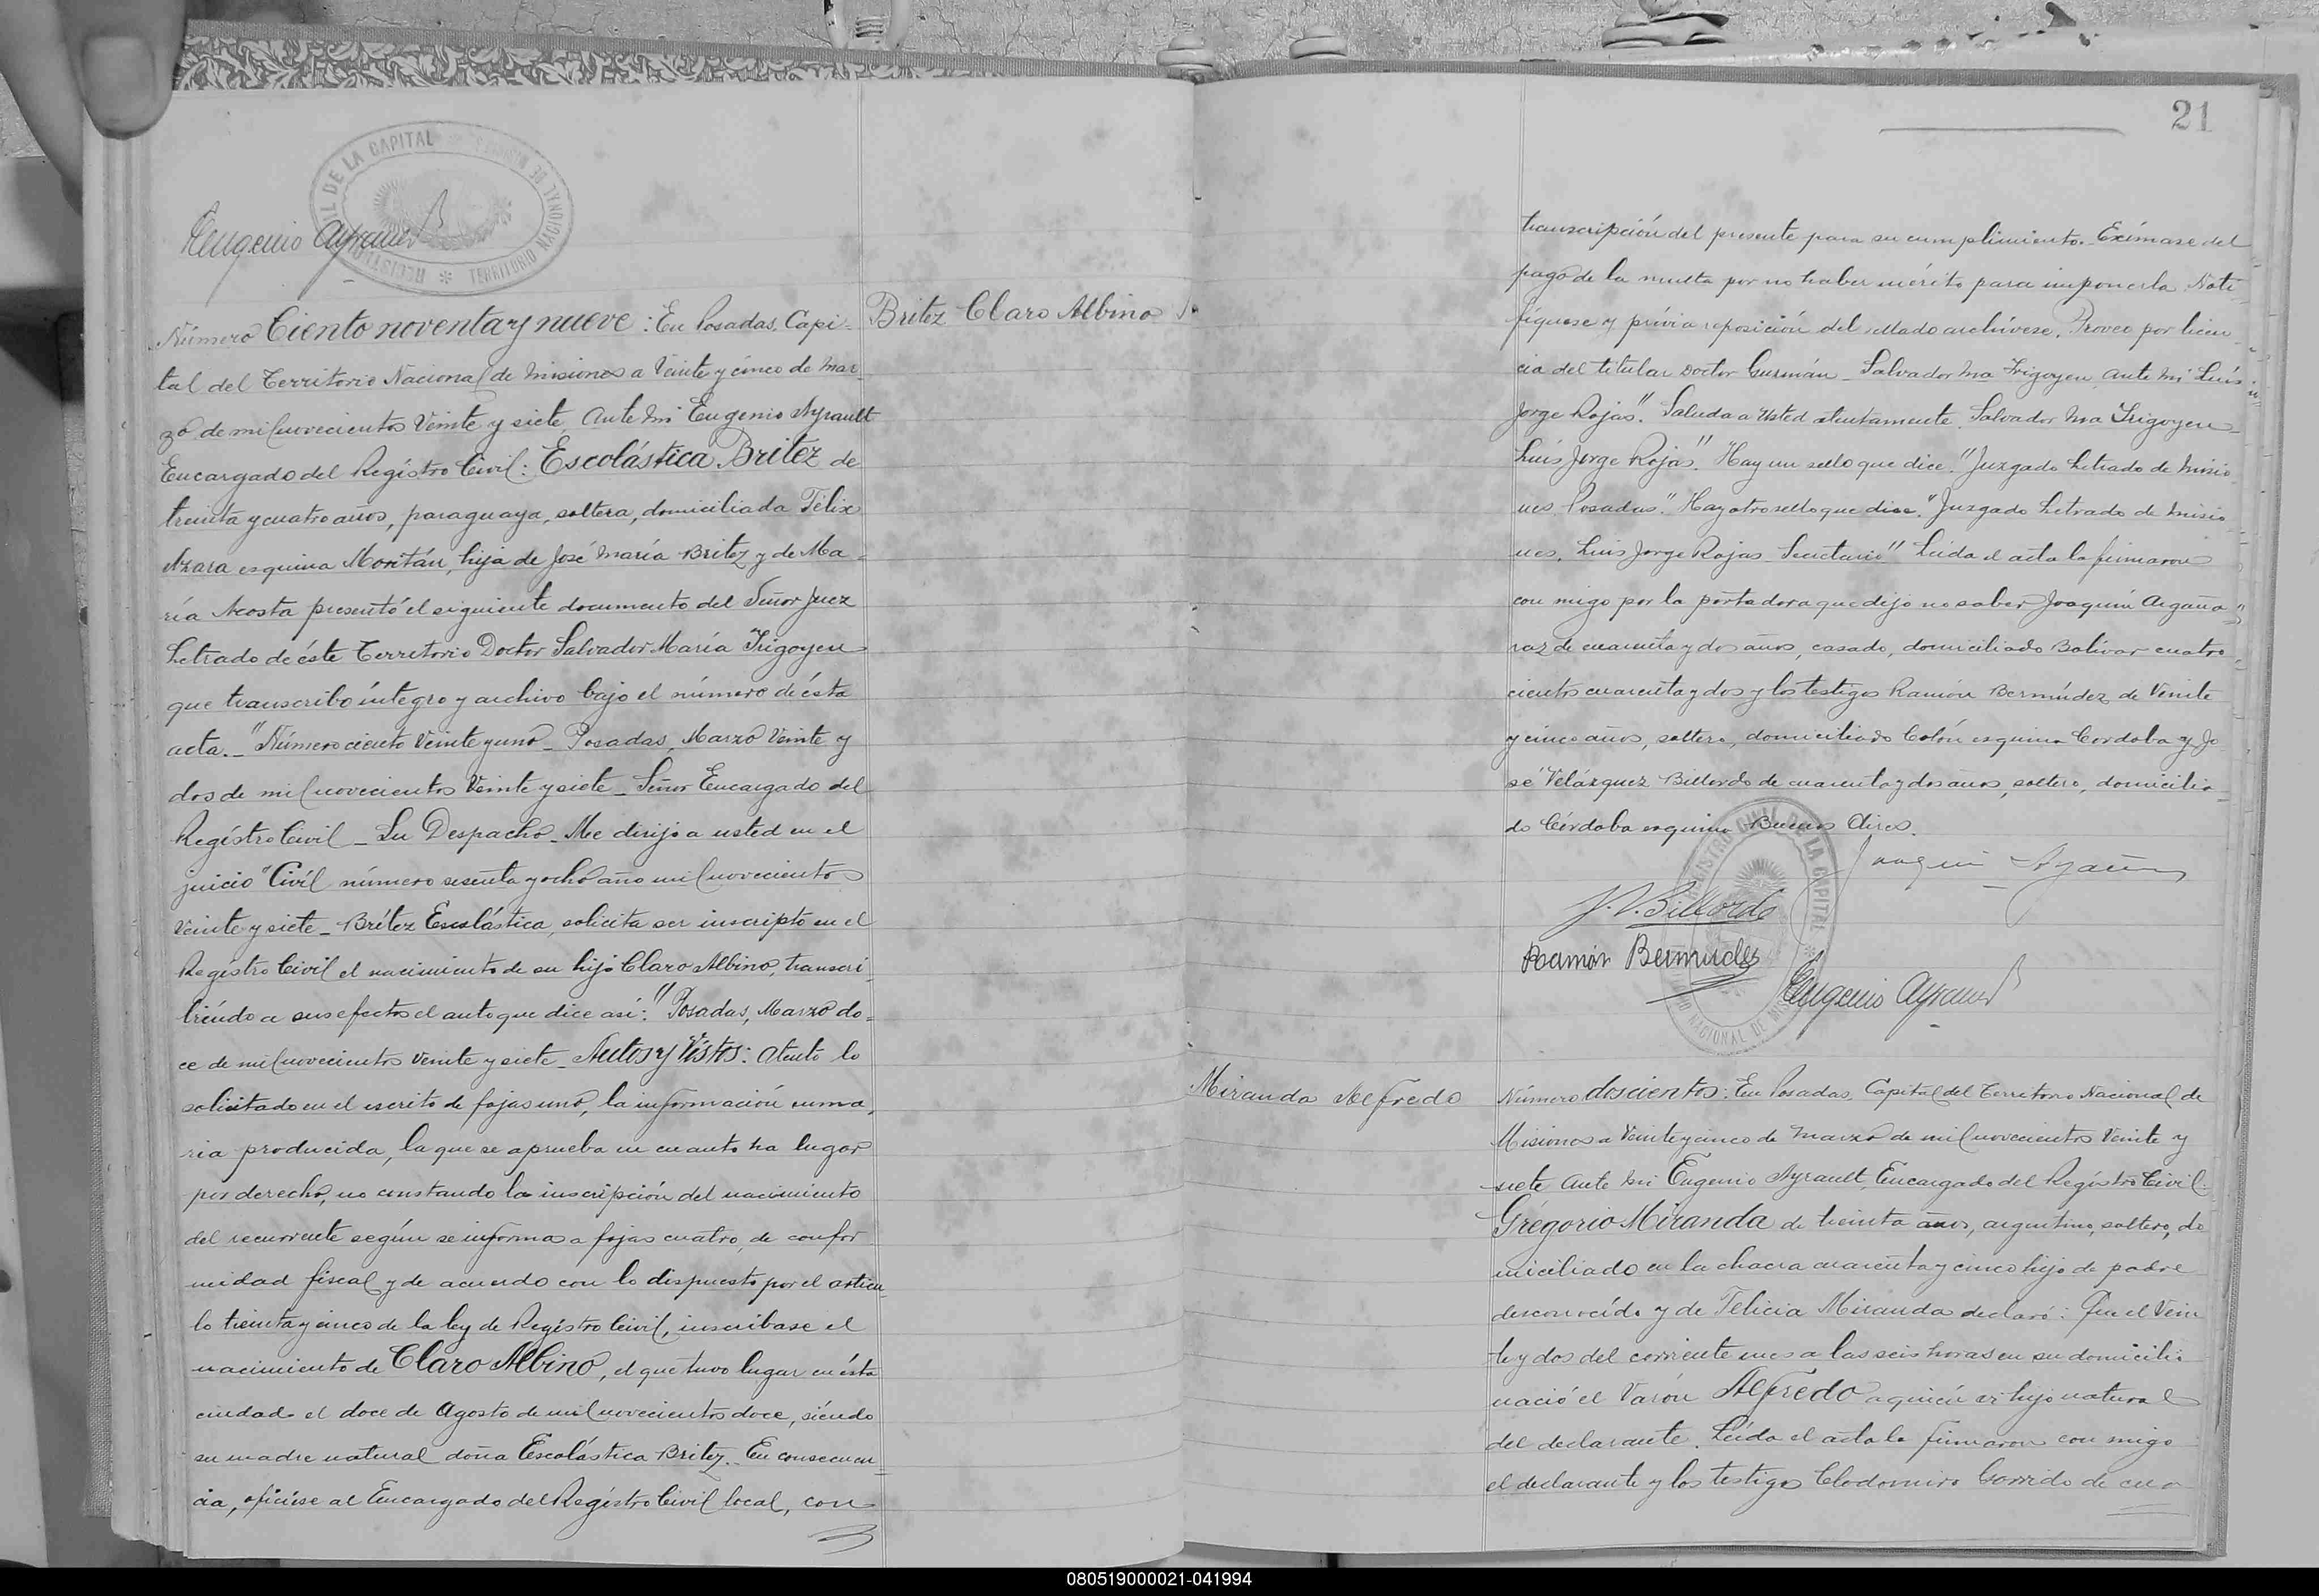 REGISTRO CIVIL DE LA CAPITAL
TERRITORIO NACIONAL DE MISIONES
Eugenio Ayrault
Número Ciento noventa y nueve: En Posadas, Capi-
tal del Territorio Nacional de Misiones a Veinte y cinco de Mar-
zo de mil novecientos Veinte y siete, Ante Mi Eugenio Ayrault
Encargado del Registro Civil: Escolástica Britez de
treinta y cuatro años, paraguaya, soltera, domiciliada Félix
Azara esquina Moritán, hija de José María Britez y de Ma-
ría Acosta presentó el siguiente documento del Señor Juez
Letrado de éste Territorio Doctor Salvador María Irigoyen
que transcribo íntegro y archivo bajo el número de ésta
acta._ "Número ciento Veinte y uno_ Posadas, Marzo Veinte y
dos de mil novecientos Veinte y siete_ Señor Encargado del
Registro Civil_ Su Despacho_ Me dirijo a usted en el
juicio "Civil número sesenta y ocho año mil novecientos
Veinte y siete_ Britez Escolástica, solicita ser inscripto en el
Registro Civil el nacimiento de su hijo Claro Albino, transcri-
biéndo a sus efectos el auto que dice así: "Posadas, Marzo do-
ce de mil novecientos veinte y siete_ Autos y Vistos: Atento lo
solicitado en el escrito de fojas uno, la información suma-
ria producida, la que se aprueba en cuanto ha lugar
por derecho, no constando la inscripción del nacimiento
del recurrente según se informa a fojas cuatro, de confor
midad fiscal y de acuerdo con lo dispuesto por el artícu-
lo treinta y cinco de la ley de Registro Civil, inscríbase el
nacimiento de Claro Albino, el que tuvo lugar en ésta
ciudad el doce de Agosto de mil novecientos doce, siéndo
su madre natural doña Escolástica Britez. En consecuen-
cia, ofíciese al Encargado del Registro Civil local, con
Britez Claro Albino
21
transcripción del presente para su cumplimiento. Exímase del
pago de la multa por no haber mérito para imponerla. Noti-
fíquese y prévia reposición del sellado archívese. Proveo por licen-
cia del titular Doctor Guzmán_ Salvador Ma Irigoyen, Ante Mi Luis
Jorge Rojas". Saluda a Usted atentamente. Salvador Ma Irigoyen_
Luis Jorge Rojas". "Hay un sello que dice: "Juzgado Letrado de Misio
nes, Posadas". "Hay otro sello que dice: "Juzgado Letrado de Misio
nes. Luis Jorge Rojas_ Secretario" Leída el acta la firmaron
con migo por la portadora que dijo no saber Joaquín Argaña-
raz de cuarenta y dos años, casado, domiciliado Bolívar cuatro-
cientos cuarenta y dos y los testigos Ramón Bermúdez de Veinte
y cinco años, soltero, domiciliado Colón esquina Cordoba y Jo
sé Velázquez Billordo de cuarenta y dos años, soltero, domicilia-
do Córdoba esquina Buenos Aires.
Joaquin
J. V. Billordo
Ramón Bermudes
Eugenio Ayrault
REGISTRO CIVIL DE LA CAPITAL
TERRITORIO NACIONAL DE MISIONES
Miranda Alfredo
Número doscientos: En Posadas, Capital del Territorio Nacional de
Misiones a Veinte y cinco de Marzo de mil novecientos Veinte y
siete Ante Mi Eugenio Ayrault, Encargado del Registro Civil:
Gregorio Miranda de treinta años, argentino, soltero, do
miciliado en la chacra cuarenta y cinco hijo de padre
desconocido y de Felicia Miranda declaró: Que el Vein
te y dos del corriente mes a las seis horas en su domicilio
nació el Varón Alfredo a quién es hijo natural
del declarante. Leída el acta la firmaron con migo
el declarante y los testigos Clodomiro Garrido de cua
080519000021-041994